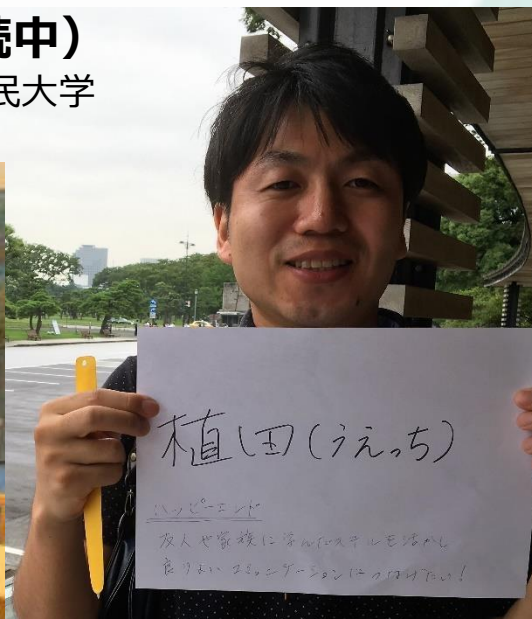 続中）
民大学
植田（うえっち）
ハッピーエンド
友人や家族に学んだスキルを活かし
良りよいコミュニケーションにつなげたい！